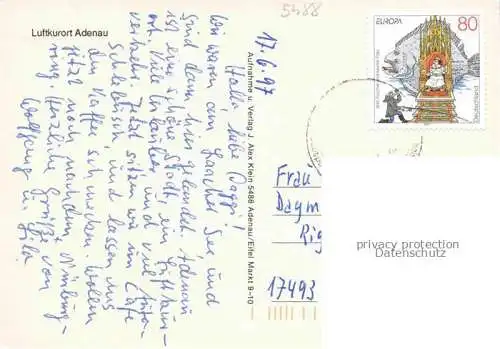 Luftkurort Adenau
5488
17.6.97
Hallo liebe Daggi!
Wir waren am Laacher See, und
sind dann hier gelandet. Adenau
ist eine schöne Stadt, ein Luftkur-
ort. Viele Urlauber und viel Auto-
verkehr. Jetzt sitzen wir im Café
Schlebusch, und lassen uns
den Kaffee schmecken. Wollen
jetzt noch nach dem Nürburg-
ring. Herzliche Grüße von
Wolfgang u. Hilde
Aufnahme u. Verlag J. Alex Klein 5488 Adenau/Eifel Markt 9-10
EUROPA
80
DEUTSCHLAND
Frau
Dagm
Rig
17493
privacy protection
Datenschutz